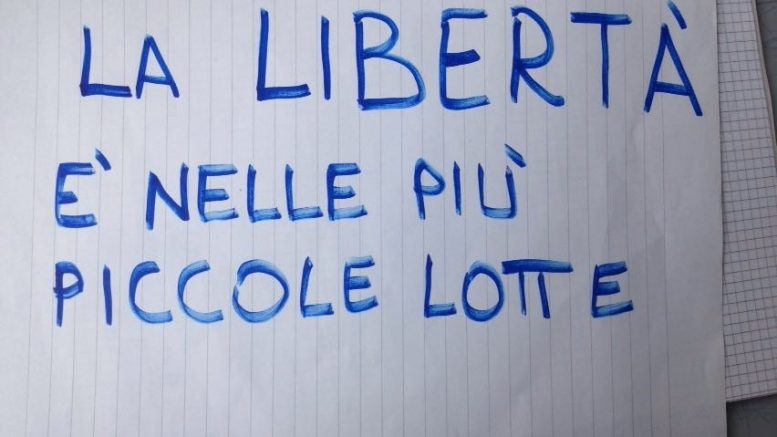 LA LIBERTÀ
E' NELLE PIÙ
PICCOLE LOTTE